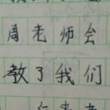 周老师会
教了我们